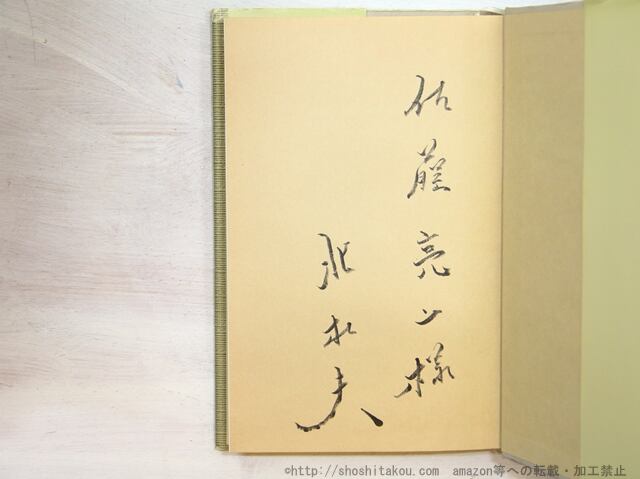 佐藤亮一様
北杜夫
©http://shoshitakou.com amazon等への転載・加工禁止